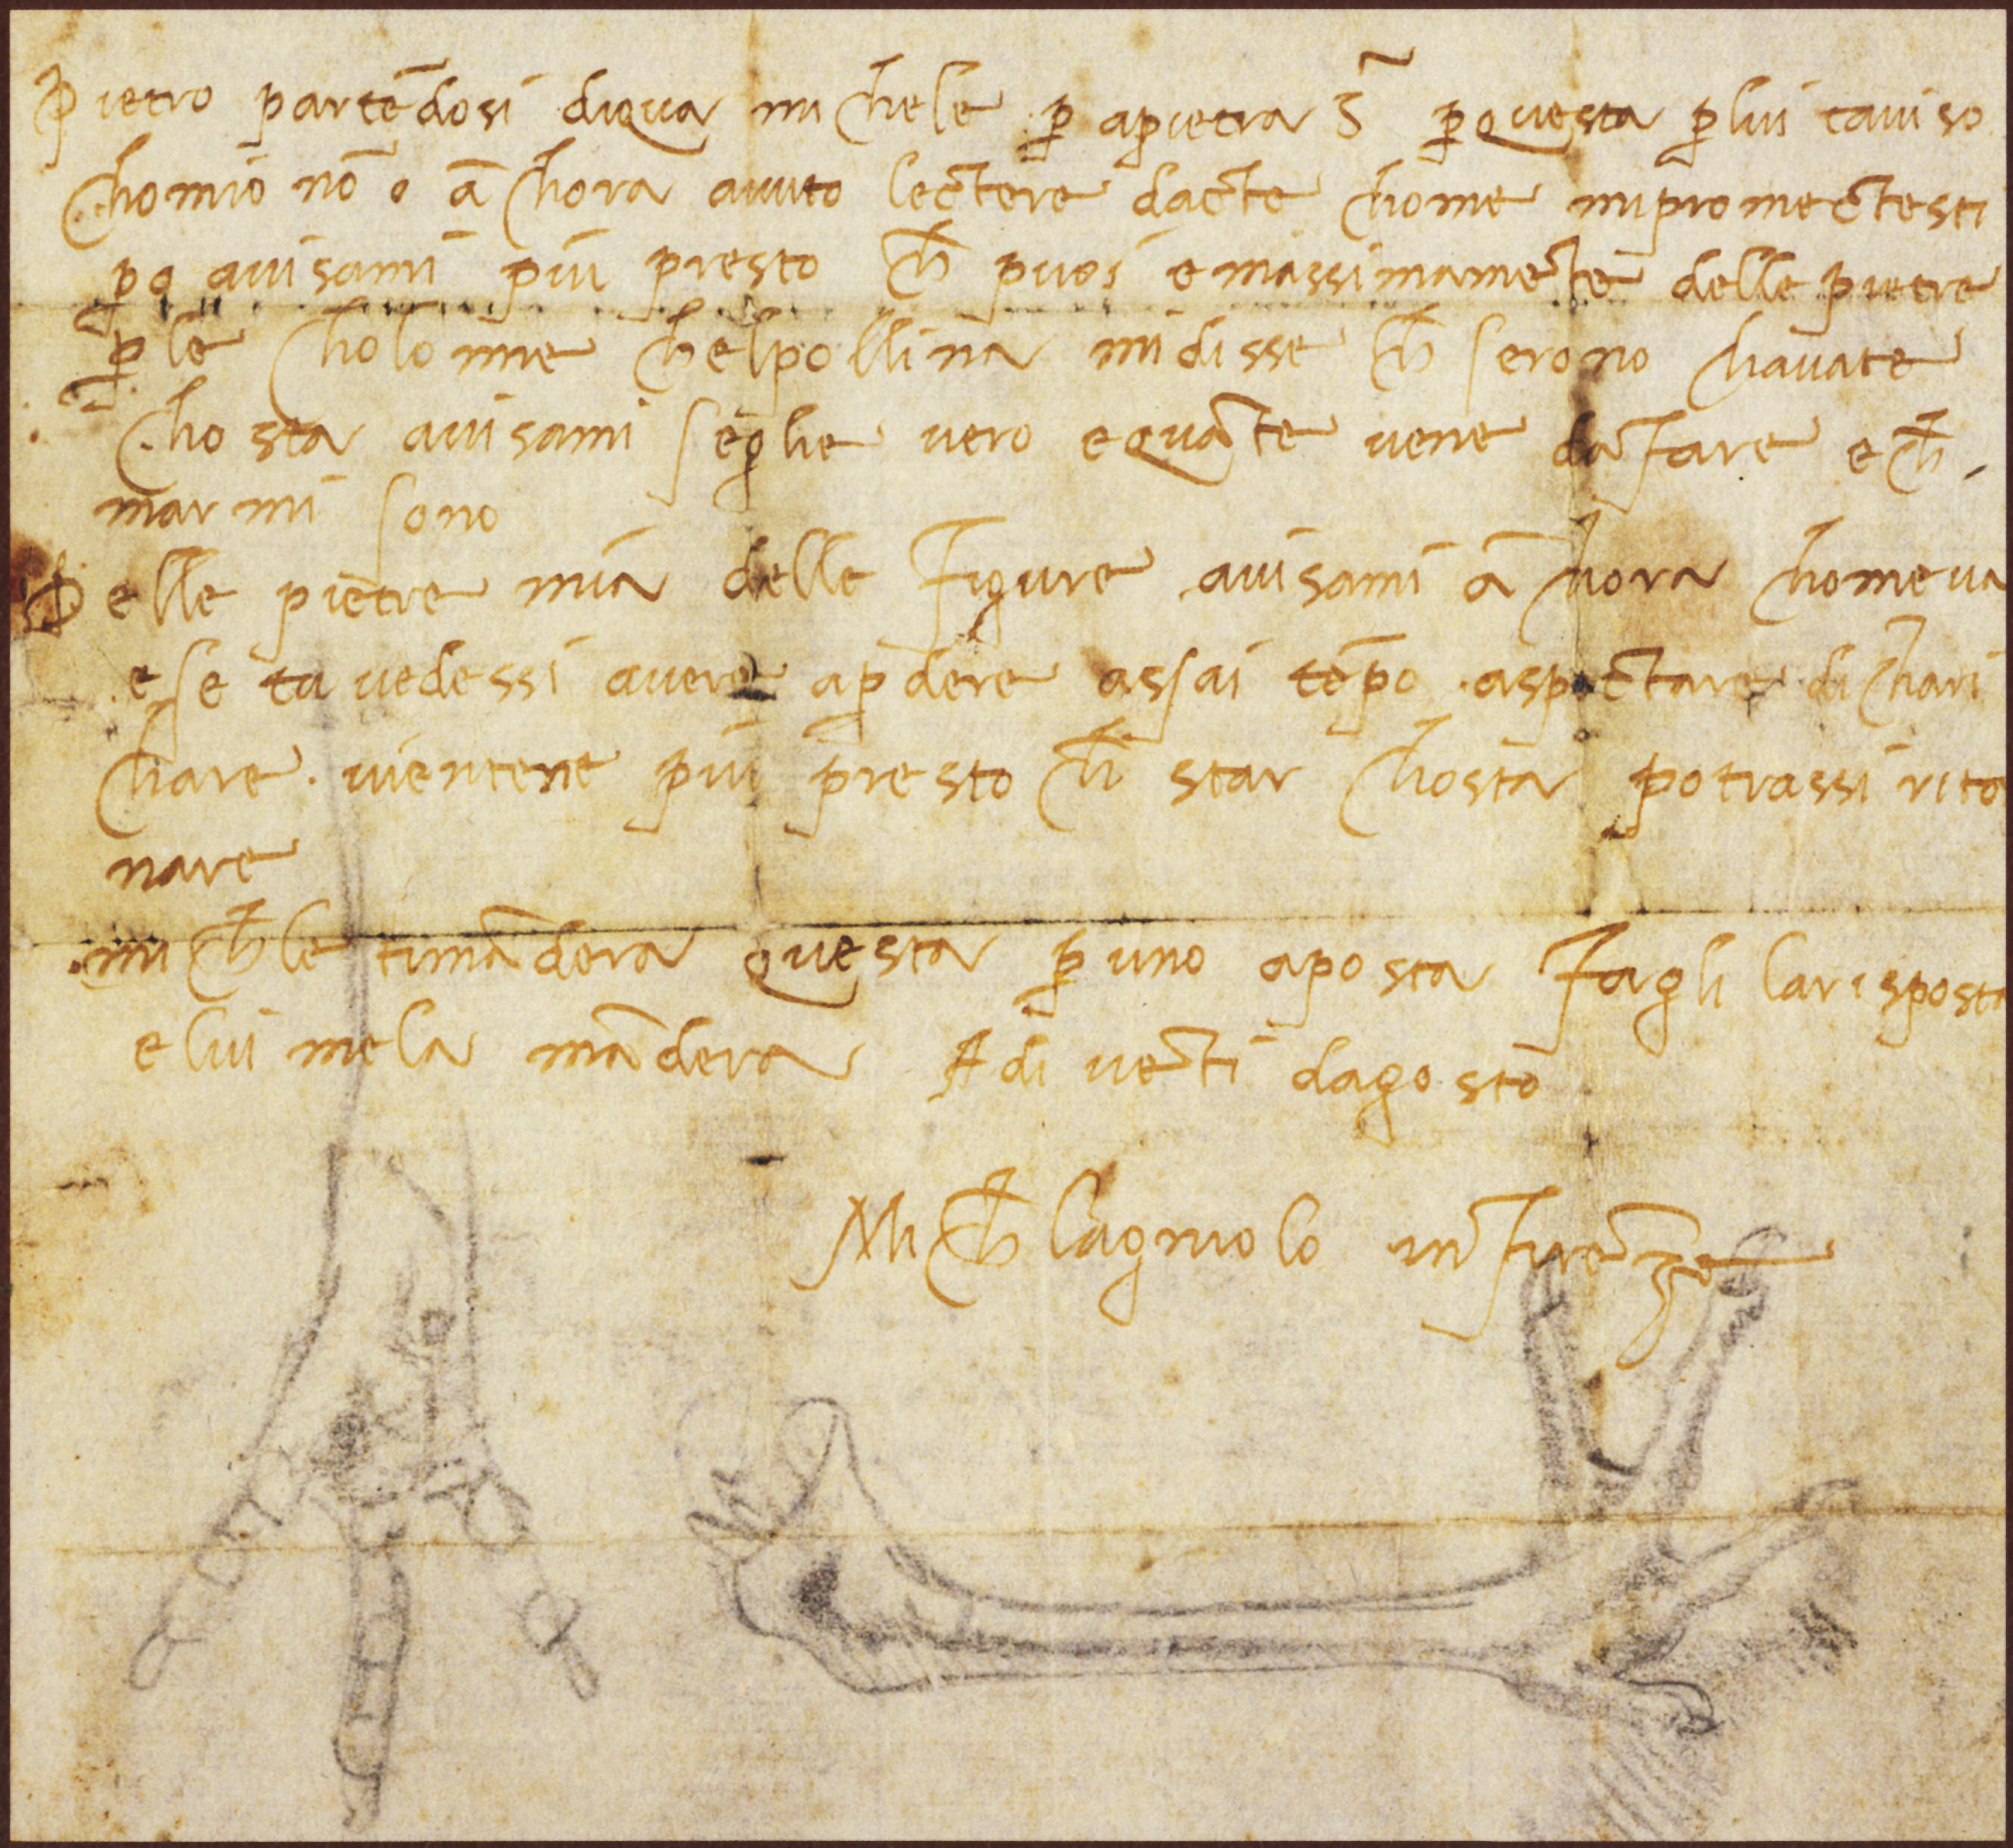 Pietro partēdosi diqua michele p̱ apietra S̃ p̱questa p̱lui taviso
chomio nō o ā chora avuto lectere dacte chome mipromectesti
p̱o avisami più presto ch̄ puoi e massimamēte delle pietre
p̱le cholonne chelpollina midisse ch̄ serono chavate
chosta avisami segli e vero e quāte vene da fare e ch̄
marmi sono
Delle pietre mia delle figure avisami ā chora chome va
e se tu vedessi avere a p̱dere assai tēpo aspectare di chari
chare vientene più presto ch̄ star chosta potrassi rito
nare
mich̄le timādera questa p̱ uno aposta fagli larisposta
e lui mela mādera Adi vēti dagosto
Mich̄lagniolo in firēze